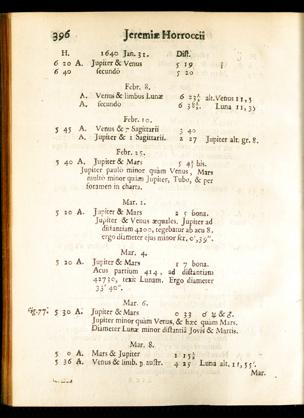 396 Jeremiæ Horroccii
H. 1640 Jan. 31. Dist.
6 20 A. Jupiter & Venus 5 19
6 40 secundo 5 20
Febr. 8.
A. Venus & limbus Lunæ 6 23 alt. Venus 11,5
A. secundo 6 38 Luna 11,35
Febr. 10.
5 45 A. Venus & 7 Sagittarii 3 40
A. Jupiter & 1 Sagittarii. 2 27 Jupiter alt. gr. 8.
Febr. 25.
5 40 A. Jupiter & Mars 5 4½ bis.
Jupiter paulo minor quam Venus, Mars
multo minor quam Jupiter, Tubo, & per
foramen in charta.
Mar. 1.
5 20 A. Jupiter & Mars 2 5 bona.
Jupiter & Venus æquales. Jupiter ad
distantiam 4200, tegebatur ab acu 8.
ergo diameter ejus minor fex, 0',39".
Mar. 4.
5 20 A. Jupiter & Mars 1 7 bona.
Acus partium 414, ad distantiam
42730, texit Lunam. Ergo diameter
33' 40".
Mar. 6.
Fig.77. 5 30 A. Jupiter & Mars 0 33 ♂ ♃ &
Jupiter minor quam Venus, & hæc quam Mars.
Diameter Lunæ minor distantiâ Jovis & Martis.
Mar. 8.
5 0 A. Mars & Jupiter 1 15
5 36 A. Venus & limb. ☽ austr. 4 25 Luna alt. 11,55'.
Mar.